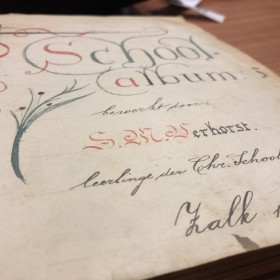 School-
album.
bewerkt door:
S. M. Verhorst.
leerlinge der Chr. School
Zalk